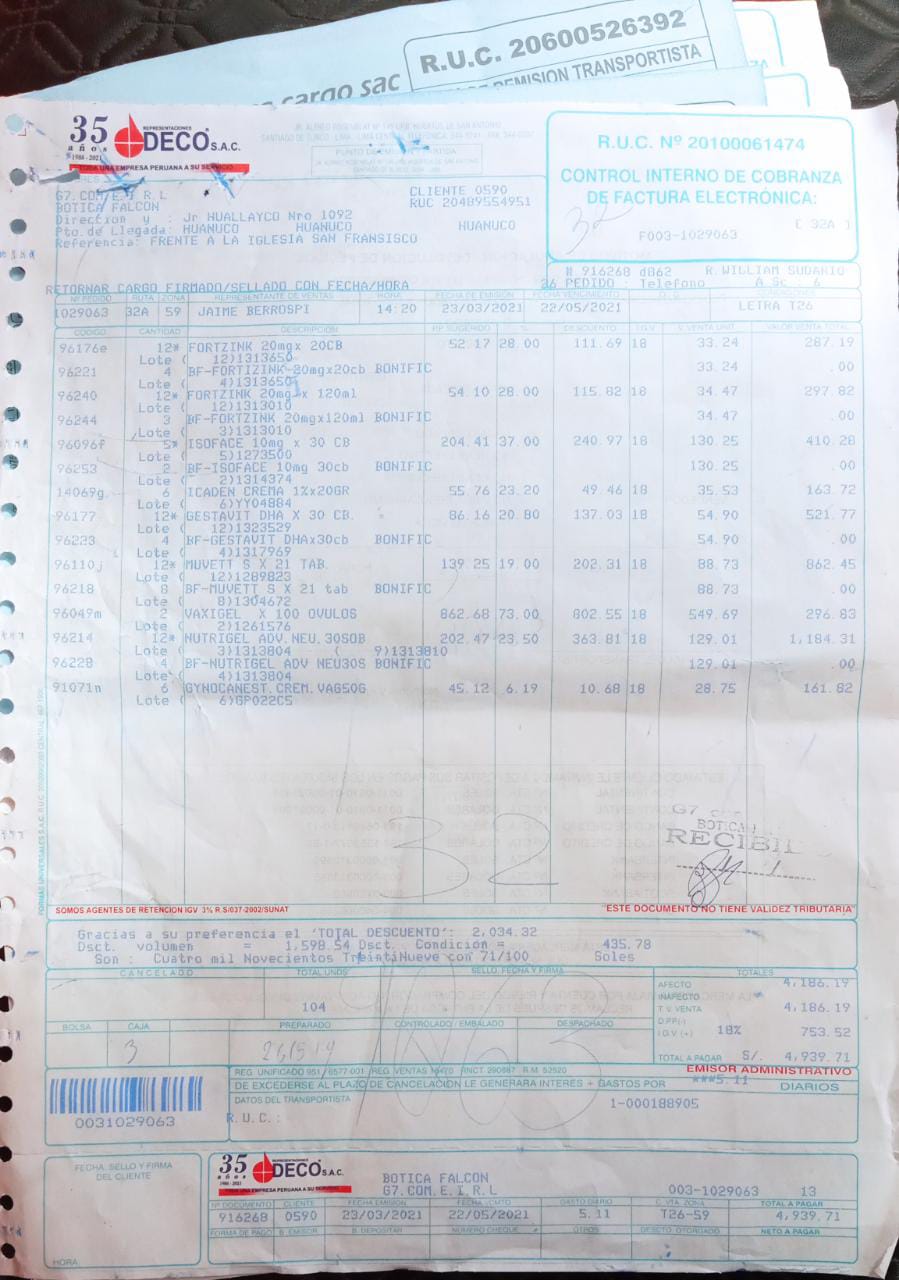 R.U.C. 20600526392
cargo sac
REMISION TRANSPORTISTA
35 años
1986 - 2021
REPRESENTACIONES
DECO S.A.C.
TODA UNA EMPRESA PERUANA A SU SERVICIO
R.U.C. Nº 20100061474
CONTROL INTERNO DE COBRANZA
DE FACTURA ELECTRÓNICA:
32
[ 32A ]
F003-1029063
G7.COM.E.I.R.L
BOTICA FALCON
CLIENTE 0590
RUC 20489554951
Direccion y : Jr HUALLAYCO Nro 1092
Pto.de Llegada: HUANUCO HUANUCO HUANUCO
Referencia: FRENTE A LA IGLESIA SAN FRANSISCO
# 916268 d862 R.WILLIAM SUDARIO
RETORNAR CARGO FIRMADO/SELLADO CON FECHA/HORA
26 PEDIDO : Telefono A Sc. 6
Nº PEDIDO RUTA ZONA REPRESENTANTE DE VENTAS HORA FECHA DE EMISIÓN FECHA VENCIMIENTO
1029063 32A 59 JAIME BERROSPI 14:20 23/03/2021 22/05/2021 LETRA T26
CODIGO CANTIDAD DESCRIPCION RP SUGERIDO % DESCUENTO I.G.V V.VENTA UNIT. VALOR VENTA TOTAL
96176e 12* FORTZINK 20mgx 20CB 52.17 28.00 111.69 18 33.24 287.19
Lote ( 12)1313650
96221 4 BF-FORTIZINK-20mgx20cb BONIFIC 33.24 .00
Lote ( 4)1313650
96240 12* FORTZINK 20mg x 120ml 54.10 28.00 115.82 18 34.47 297.82
Lote ( 12)1313010
96244 3 BF-FORTZINK 20mgx120ml BONIFIC 34.47 .00
Lote ( 3)1313010
96096f 5* ISOFACE 10mg x 30 CB 204.41 37.00 240.97 18 130.25 410.28
Lote ( 5)1273500
96253 2 BF-ISOFACE 10mg 30cb BONIFIC 130.25 .00
Lote ( 2)1314374
14069g 6 ICADEN CREMA 1%x20GR 55.76 23.20 49.46 18 35.53 163.72
Lote ( 6)YY04884
96177 12* GESTAVIT DHA X 30 CB. 86.16 20.80 137.03 18 54.90 521.77
Lote ( 12)1323529
96223 4 BF-GESTAVIT DHAx30cb BONIFIC 54.90 .00
Lote ( 4)1317969
96110j 12* MUVETT S X 21 TAB. 139.25 19.00 202.31 18 88.73 862.45
Lote ( 12)1289823
96218 8 BF-MUVETT S X 21 tab BONIFIC 88.73 .00
Lote ( 8)1304672
96049m 2 VAXIGEL X 100 OVULOS 862.68 73.00 802.55 18 549.69 296.83
Lote ( 2)1261576
96214 12* NUTRIGEL ADV.NEU.30SOB 202.47 23.50 363.81 18 129.01 1,184.31
Lote ( 3)1313804 ( 9)1313810
96228 4 BF-NUTRIGEL ADV NEU30S BONIFIC 129.01 .00
Lote ( 4)1313804
91071n 6 GYNOCANEST.CREM.VAG50G 45.12 6.19 10.68 18 28.75 161.82
Lote ( 6)GP022C5
G7
BOTICA
RECIBI
32
SOMOS AGENTES DE RETENCION IGV 3% R.S/037-2002/SUNAT
"ESTE DOCUMENTO NO TIENE VALIDEZ TRIBUTARIA"
Gracias a su preferencia el 'TOTAL DESCUENTO': 2,034.32
Dsct. volumen = 1,598.54 Dsct. Condición = 435.78
Son : Cuatro mil Novecientos TreintiNueve con 71/100 Soles
CANCELADO TOTAL UNDS SELLO, FECHA Y FIRMA TOTALES
AFECTO 4,186.19
INAFECTO
104
T.V. VENTA 4,186.19
D.P.P(-)
BOLSA CAJA PREPARADO CONTROLADO / EMBALADO DESPACHADO
I.G.V (+) 18% 753.52
3
TOTAL A PAGAR S/. 4,939.71
EMISOR ADMINISTRATIVO
DE EXCEDERSE AL PLAZO DE CANCELACIÓN LE GENERARA INTERES + GASTOS POR ***5.11 DIARIOS
DATOS DEL TRANSPORTISTA
1-000188905
R.U.C.:
0031029063
FECHA, SELLO Y FIRMA
DEL CLIENTE
HORA
35 años
1986 - 2021
REPRESENTACIONES
DECO S.A.C.
TODA UNA EMPRESA PERUANA A SU SERVICIO
BOTICA FALCON
G7.COM.E.I.R.L
003-1029063 13
Nº DOCUMENTO CLIENTE FECHA EMISION FECHA VCMTO GASTO DIARIO C. VTA. ZONA TOTAL A PAGAR
916268 0590 23/03/2021 22/05/2021 5.11 T26-59 4,939.71
FORMA DE PAGO B. EMISOR B. DEPOSITAR NUMERO CHEQUE OTROS DESCTO. OTORGADO NETO A PAGAR